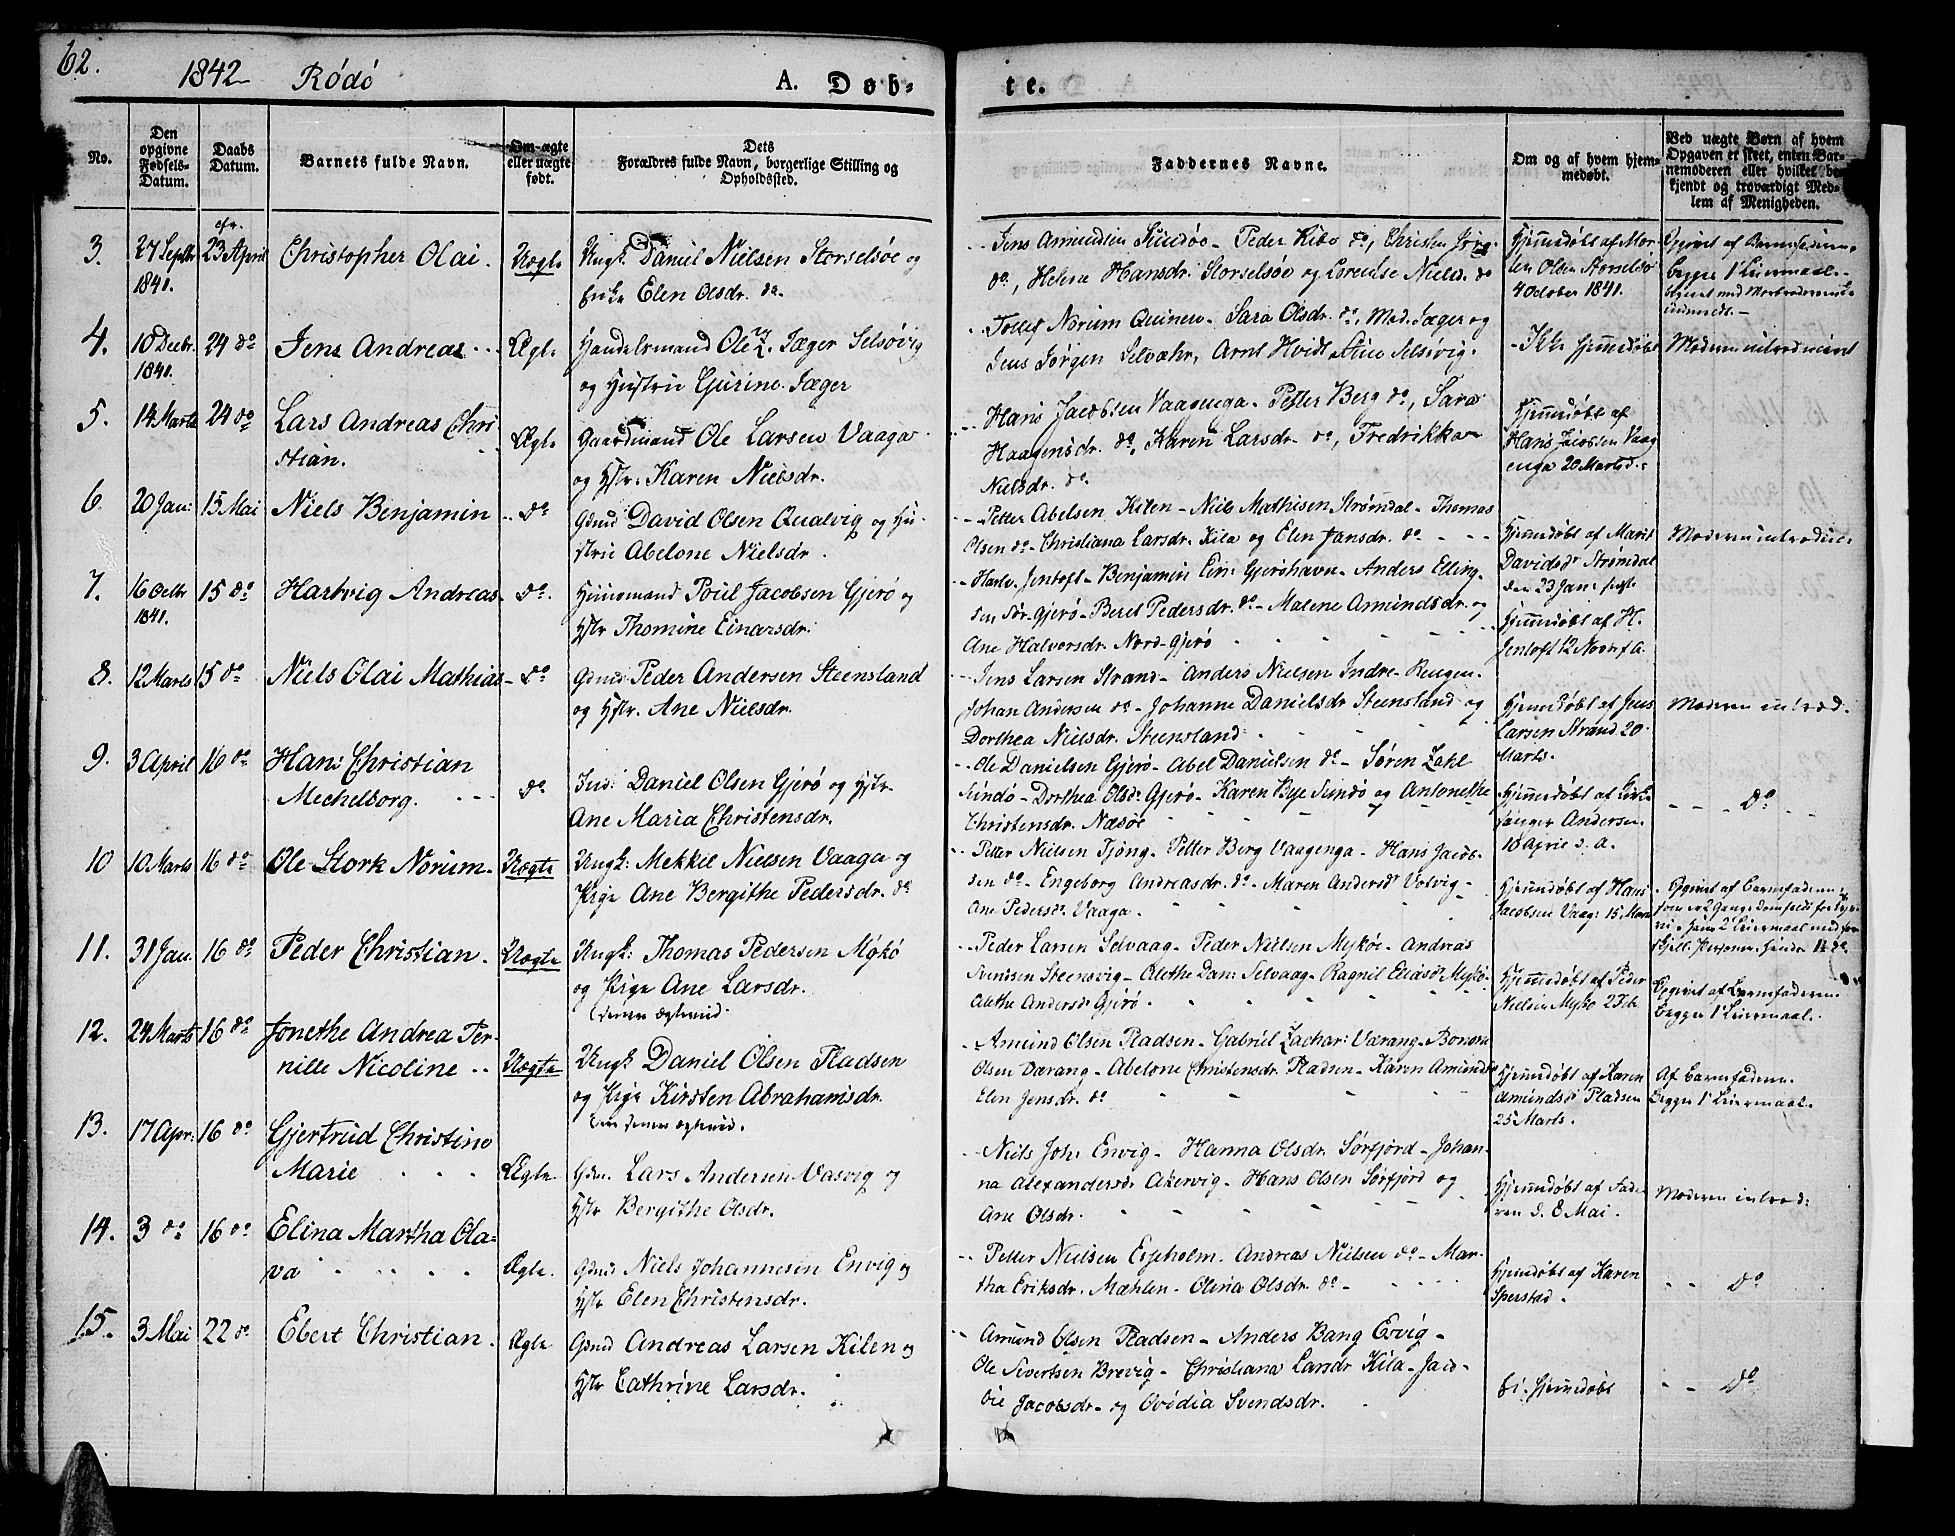 62.
1842 Rödö
A. Døb-
te.
No.
Den
opgivne
Fødsels-
Datum.
Daabs
Datum.
Barnets fulde Navn.
Om ægte
eller uægte
født.
Dets
Forældres fulde Navn, borgerlige Stilling og
Opholdssted.
Faddernes Navne.
Om og af hvem hjem-
medøbt.
Ved uægte Børn af hvem
Opgaven er skeet, enten Bar-
nemoderen eller hvilket be-
kjendt og troværdigt Med-
lem af Menigheden.
3.
27 Septb
1841.
23 April
Christopher Olai.
Uægte
Ungk. Daniel Nielsen Storselsöe og
Elen Olsdr. do.
Jens Amundsen Sundöe - Peder Kibo do, Christen
do, Helena Hansdr. Storselsöe og Lorentse Nielsd. do
Hjemmedöbt af Mor-
ten Olsen Storselsö
4 October 1841.
Opgivet af Barnefaderen.
begges 1' Leiermaal.
4.
10 Decbr.
1841.
24 do
Jens Andreas
Ægte
Handelsmand Ole Jæger Selsövig
og Hustrue Gurine Jæger
Tollef Norum Qvinen. Sara Olsdr. do, Mad. Jæger og
Jens Jörgen Selvær, Arnt Hvidt Stine Selsövig.
Ikke hjemmedöbt
Moderen introduceret
5.
14 Marts
24 do
Lars Andreas Chri
stian.
Ægte
Gaardmand Ole Larsen Vaaga
og Hstr. Karen Nielsdr.
Hans Jacobsen Vaagenga - Petter Berg do, Sara
Haagensdr. do, Karen Larsdr. do, Fredrikka
Nielsdr. do.
Hjemmedöbt af
Hans Jacobsen Vaag
enga 20 Marts
6.
20 Jan:
15 Mai
Niels Benjamin
do
Gdmd David Olsen Qualvig og Hu-
strue Abelone Nielsdr.
Petter Abelsen Kilen - Niels Mathisen Strömdal - Thomas
Olsen do - Christiana Larsdr. Kila og Elen Jansdr. do
Hjemmedöbt af Marit
Davidsdr Strömdal
den 23 Jan:
Moderen introduc:
7.
16 Octbr
1841.
15 do
Hartvig Andreas
do.
Huusmand Poul Jacobsen Gjerö og
Hstr Thomine Einarsdr.
Hartv. Jentoft - Benjamin Ein: Gjeröhavn - Anders Elling-
sen Sör-Gjerö - Beret Pedersdr. do - Malene Amundsdr. og
Ane Halvorsdr. Nord-Gjerö
Hjemmedöbt af H.
Jentoft 12 Novr f. A.
8.
12 Marts
15 do
Niels Olai Mathias
do
Gdmd Peder Andersen Steensland
og Hstr. Ane Nielsdr.
Jens Larsen Strand - Anders Nielsen Indre-Rengen.
Johan Andersen do - Johanne Danielsdr Steensland og
Dorthea Nielsdr. Steensland
Hjemmedöbt af Jens
Larsen Strand 20
Marts.
Moderen introd.
9.
3 April
16 do
Hans Christian
Mechelborg.
do
Ind: Daniel Olsen Gjerö og Hstr.
Ane Maria Christensdr.
Ole Danielsen Gjerö - Abel Danielsen do - Sören Zahl
Sundö - Dorthea Olsdr Gjerö - Karen Bye Sundö og Antonethe
Christensdr. Næsöe
Hjemmedöbt af
Andersen
10 April s. a.
do
10
10 Marts
16 do
Ole Stork Norum.
Uægte
Ungk: Mekkel Nielsen Vaaga og
Pige Ane Bergithe Pedersdr. do
Petter Nielsen Tjöng - Petter Berg Vaagenga - Hans Jacob-
sen do - Engeborg Andreasdr. do - Maren Andersdr Volvig -
Ane Pedersdr Vaaga.
Hjemmedöbt af Hans
Jacobsen Vaag: 15 Marts
Opgivet af Barnefaderen
11.
31 Jan.
16 do
Peder Christian.
Uægte
Ungk: Thomas Pedersen Mykö
og Pige Ane Larsdr.
(denne ægteviet.
Peder Larsen Selvaag - Peder Nielsen Myköe - Andreas
Svendsen Steensvig - Alethe Dan: Selvaag - Ragnil Eliasdr Mykö -
Alethe Andersdr Gjerö.
Hjemmedöbt af Peder
Nielsen Mykö 2 Feb
Opgivet af Barnefaderen
begges 1' Leiermaal.
12.
24 Marts
16 do
Jonethe Andrea Per-
nille Nicoline
Uægte
Ungk Daniel Olsen Pladsen
og Pige Kirsten Abrahamsdr.
Amund Olsen Pladsen - Gabriel Zachar: Værang - Bonona
Olsen Værang - Abelone Christensdr. Pladsen - Karen Amundsdr
Elen Jensdr. do
Hjemmedöbt af Karen
Amundsdr Pladsen
25 Marts.
Af Barnefaderen.
Begges 1' Leiermaal.
13.
17 Apr:
16 do
Gjertrud Christine
Marie
Ægte
Gdm. Lars Andersen Vasvig og
Hstr Bergithe Olsdr.
Niels Joh: Envig - Hanna Olsdr Sörfjord - Johan-
na Alexandersdr Akervig - Hans Olsen Sörfjord og
Ane Olsdr.
Hjemmedöbt af Fade
ren d. 8 Mai.
Moderen introd:
14.
3 do
16 do
Elina Martha Ola-
va
Ægte
Gdmd Niels Johannesen Envig og
Hstr Elen Christensdr.
Petter Nielsen Esjeholm. Andreas Nielsen do - Mar-
tha Eriksdr. Mæhlen - Olena Olsdr. do
Hjemdöbt af Karen
Sperstad.
do
15.
3 Mai
22 do
Ebert Christian
Ægte
Gdmd Andreas Larsen Kilen og
Hstr Cathrine Larsdr.
Amund Olsen Pladsen - Anders Bang Envig -
Ole Sivertsen Brevig - Christiana Larsdr Kila - Jaco-
bie Jacobsdr - og Ovidia Svendsdr.
Ei hjemmedöbt
do